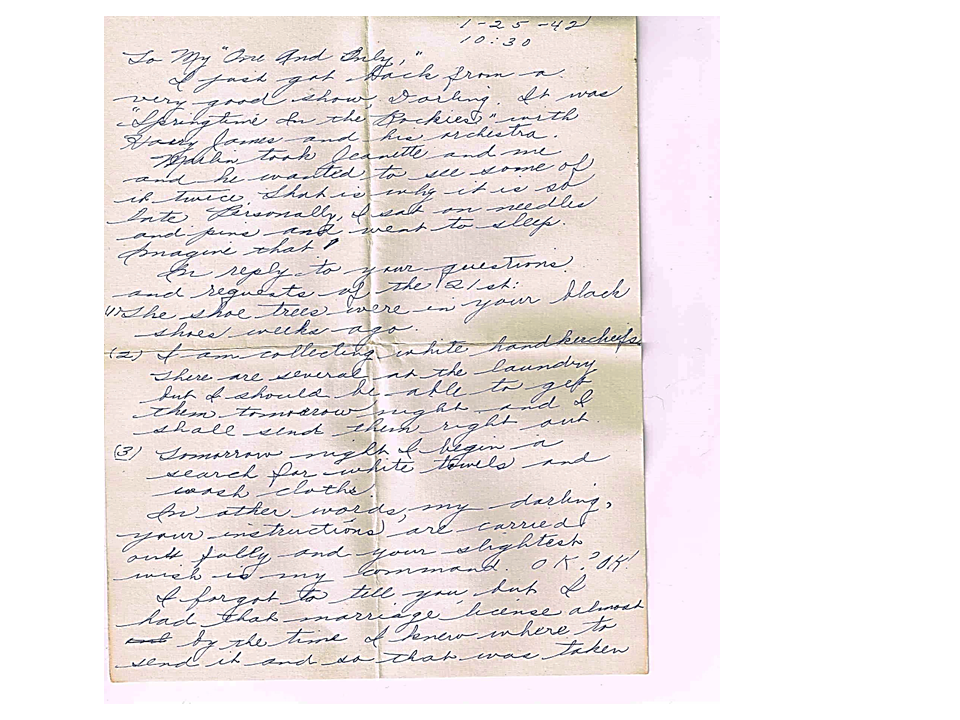 1-25-42
10:30
To My "One And Only,"
I just got back from a
very good show, Darling. It was
"Springtime In the Rockies" with
Harry James and his orchestra.
Marlin took Jeanette and me
and he wanted to see some of
it twice. That is why it is so
late. Personally, I sat on needles
and pins and went to sleep.
Imagine that!
In reply to your questions
and requests of the 21st:
(1) The shoe trees were in your black
shoes weeks ago.
(2) I am collecting white handkercheifs.
There are several at the laundry
but I should be able to get
them tomorrow night and I
shall send them right out.
(3) Tomorrow night I begin a
search for white towels and
wash cloths.
In other words, my darling,
your instructions are carried
out fully and your slightest
wish is my command. OK? OK!
I forgot to tell you but I
had that marriage license almost
by the time I knew where to
send it and so that was taken